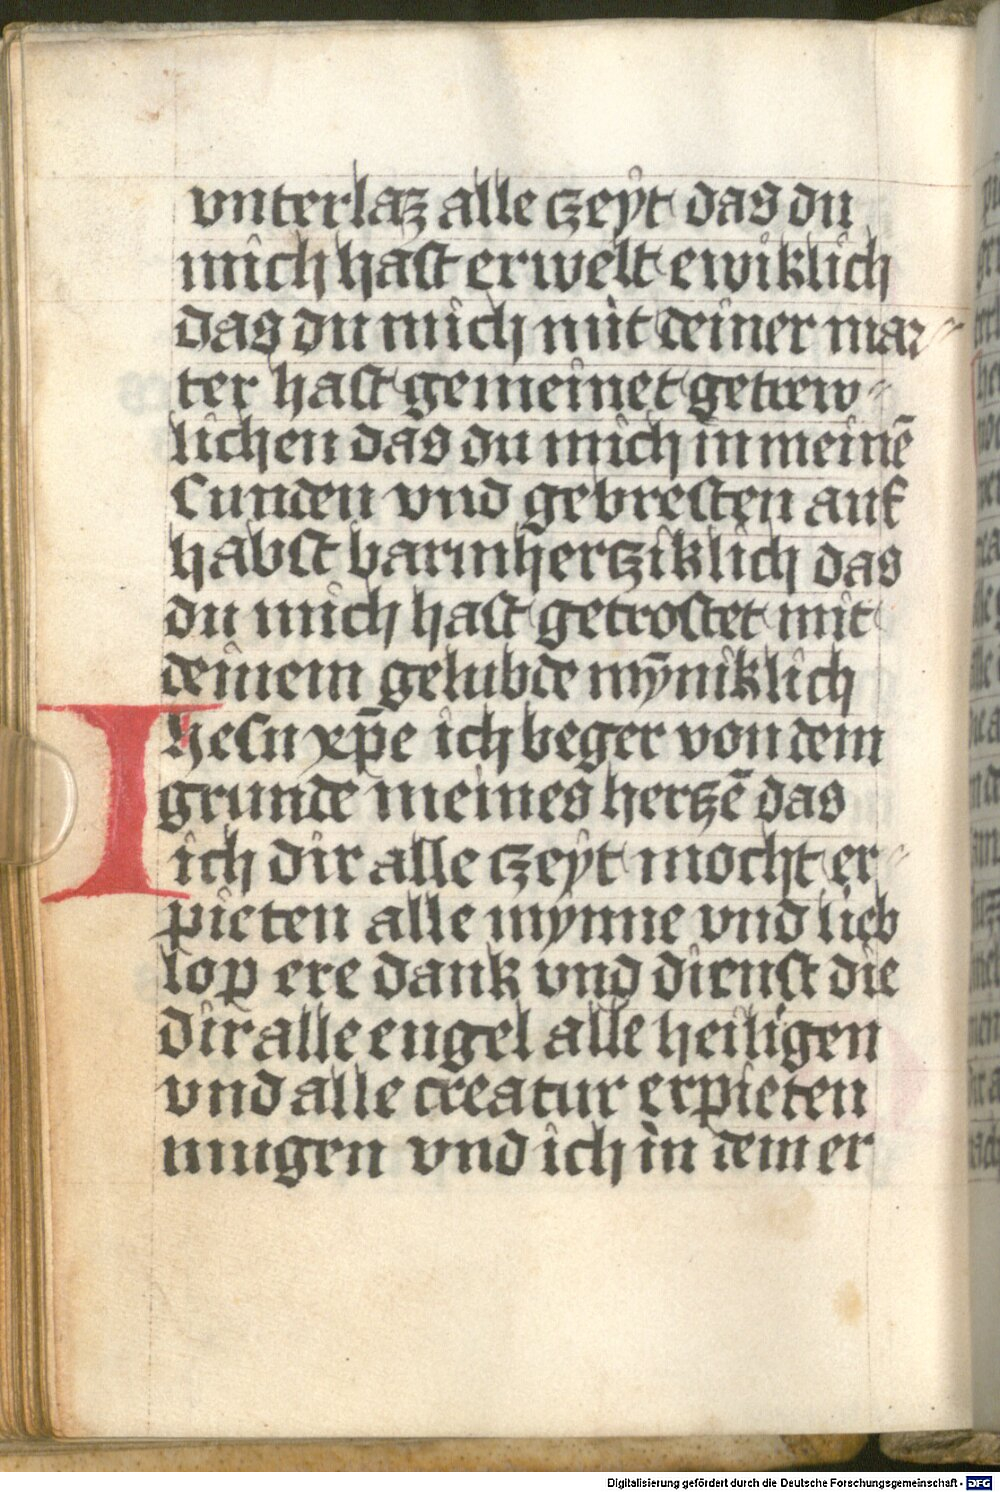 vnterlaz alle czeyt das du
mich hast erwelt ewiklich
das du mich mit deiner mar⸗
ter hast gemeinet getrew⸗
lichen das du mich in meinē
sunden vnd gebresten auf
habst barmhercziklich das
du mich hast getrostet mit
deinem gelubde mȳniklich
Ihesu xp̄e ich beger von dem
grunde meines herczē das
ich dir alle czeyt mocht er⸗
pieten alle mynne vnd lieb
lop ere dank vnd dienst die
dir alle engel alle heiligen
vnd alle creatur erpieten
mugen vnd ich in dem er
Digitalisierung gefördert durch die Deutsche Forschungsgemeinschaft - DFG